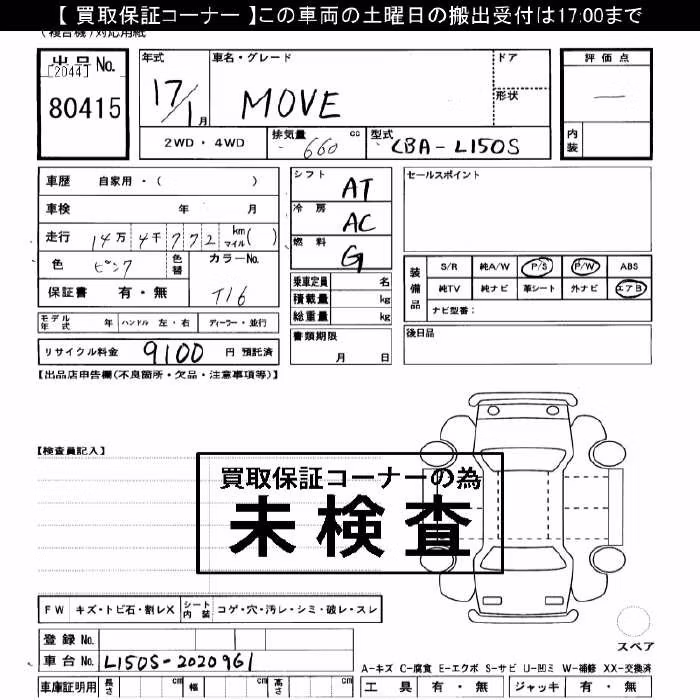 【 買取保証コーナー 】この車両の土曜日の搬出受付は17:00まで
(複合機)対応用紙
出品No.
[2044]
80415
年式
17/1月
車名・グレード
MOVE
ドア
形状
評価点
—
内装
2WD・4WD
排気量 660 cc
型式 CBA-L150S
車歴 自家用・( )
車検 年 月
走行 14万 4千 772 km マイル( )
色 ピンク
色替
カラーNo.
T16
保証書 有・無
シフト AT
冷房 AC
燃料 G
乗車定員 名
積載量 kg
総重量 kg
セールスポイント
装備品
S/R 純A/W P/S P/W ABS
純TV 純ナビ 革シート 外ナビ エアB
ナビ型番：
モデル年式 年 ハンドル 左・右 ディーラー・並行
書類期限
月 日
後日品
リサイクル料金 9100 円 預託済
【出品店申告欄(不良箇所・欠品・注意事項等)】
【検査員記入】
買取保証コーナーの為
未検査
FW キズ・トビ石・割レX シート内装 コゲ・穴・汚レ・シミ・破レ・スレ
登録No.
車台No. L150S-2020961
スペア
A-キズ C-腐食 E-エクボ S-サビ U-凹ミ W-補修 XX-交換済
車庫証明用 長さ cm 幅 cm 高さ cm
工具 有・無 ジャッキ 有・無